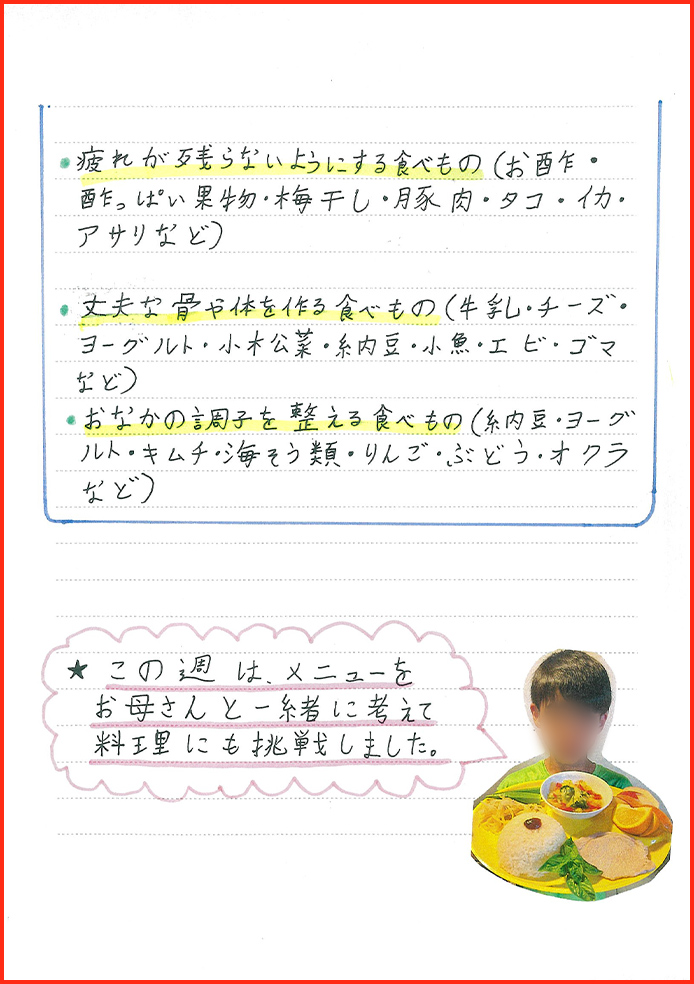 ・疲れが残らないようにする食べもの(お酢・
酢っぱい果物・梅干し・豚肉・タコ・イカ・
アサリなど)
・丈夫な骨や体を作る食べもの(牛乳・チーズ・
ヨーグルト・小松菜・納豆・小魚・エビ・ゴマ
など)
・おなかの調子を整える食べもの(納豆・ヨーグ
ルト・キムチ・海そう類・りんご・ぶどう・オクラ
など)
★この週は、メニューを
お母さんと一緒に考えて
料理にも挑戦しました。